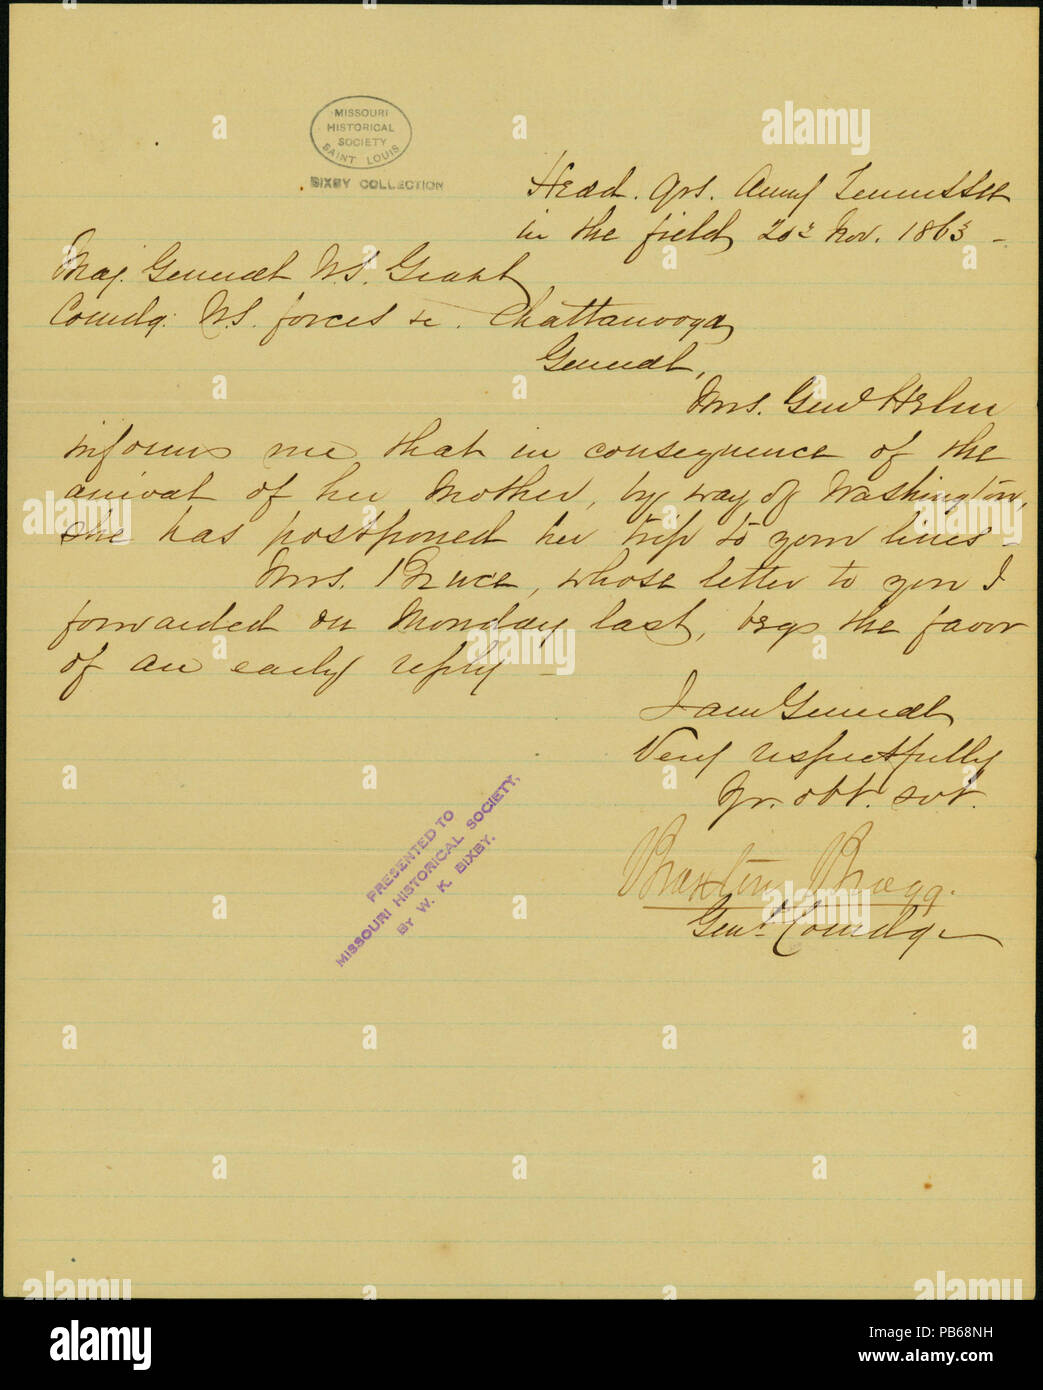 MISSOURI
HISTORICAL
SOCIETY
SAINT LOUIS
BIXBY COLLECTION
Head. Qrs. Army Tennessee
in the field, 20th Nov. 1863 -
Maj. General U.S. Grant
Comdg. U.S. forces &c. Chattanooga,
General,
Mrs. Genl Helm
informs me that in consequence of the
arrival of her Mother, by way of Washington,
she has postponed her trip to your lines -
Mrs. Bruce, whose letter to you I
forwarded on Monday last, begs the favor
of an early reply -
I am General
Very respectfully
Yr. obt. svt.
Braxton Bragg.
Genl. Comdg.
PRESENTED TO
MISSOURI HISTORICAL SOCIETY,
BY W. K. BIXBY.
alamy
Image ID: PB68NH
www.alamy.com